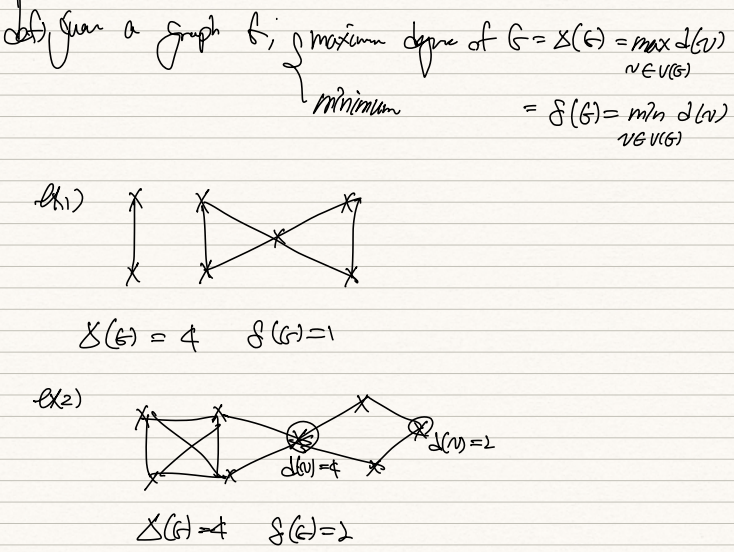 def) Given a graph G, { maximum degree of G = Δ(G) = max d(v)
v∈V(G)
minimum = δ(G) = min d(v)
v∈V(G)
ex1)
Δ(G) = 4 δ(G)=1
ex2)
d(v)=2
d(v)=4
Δ(G)=4 δ(G)=2